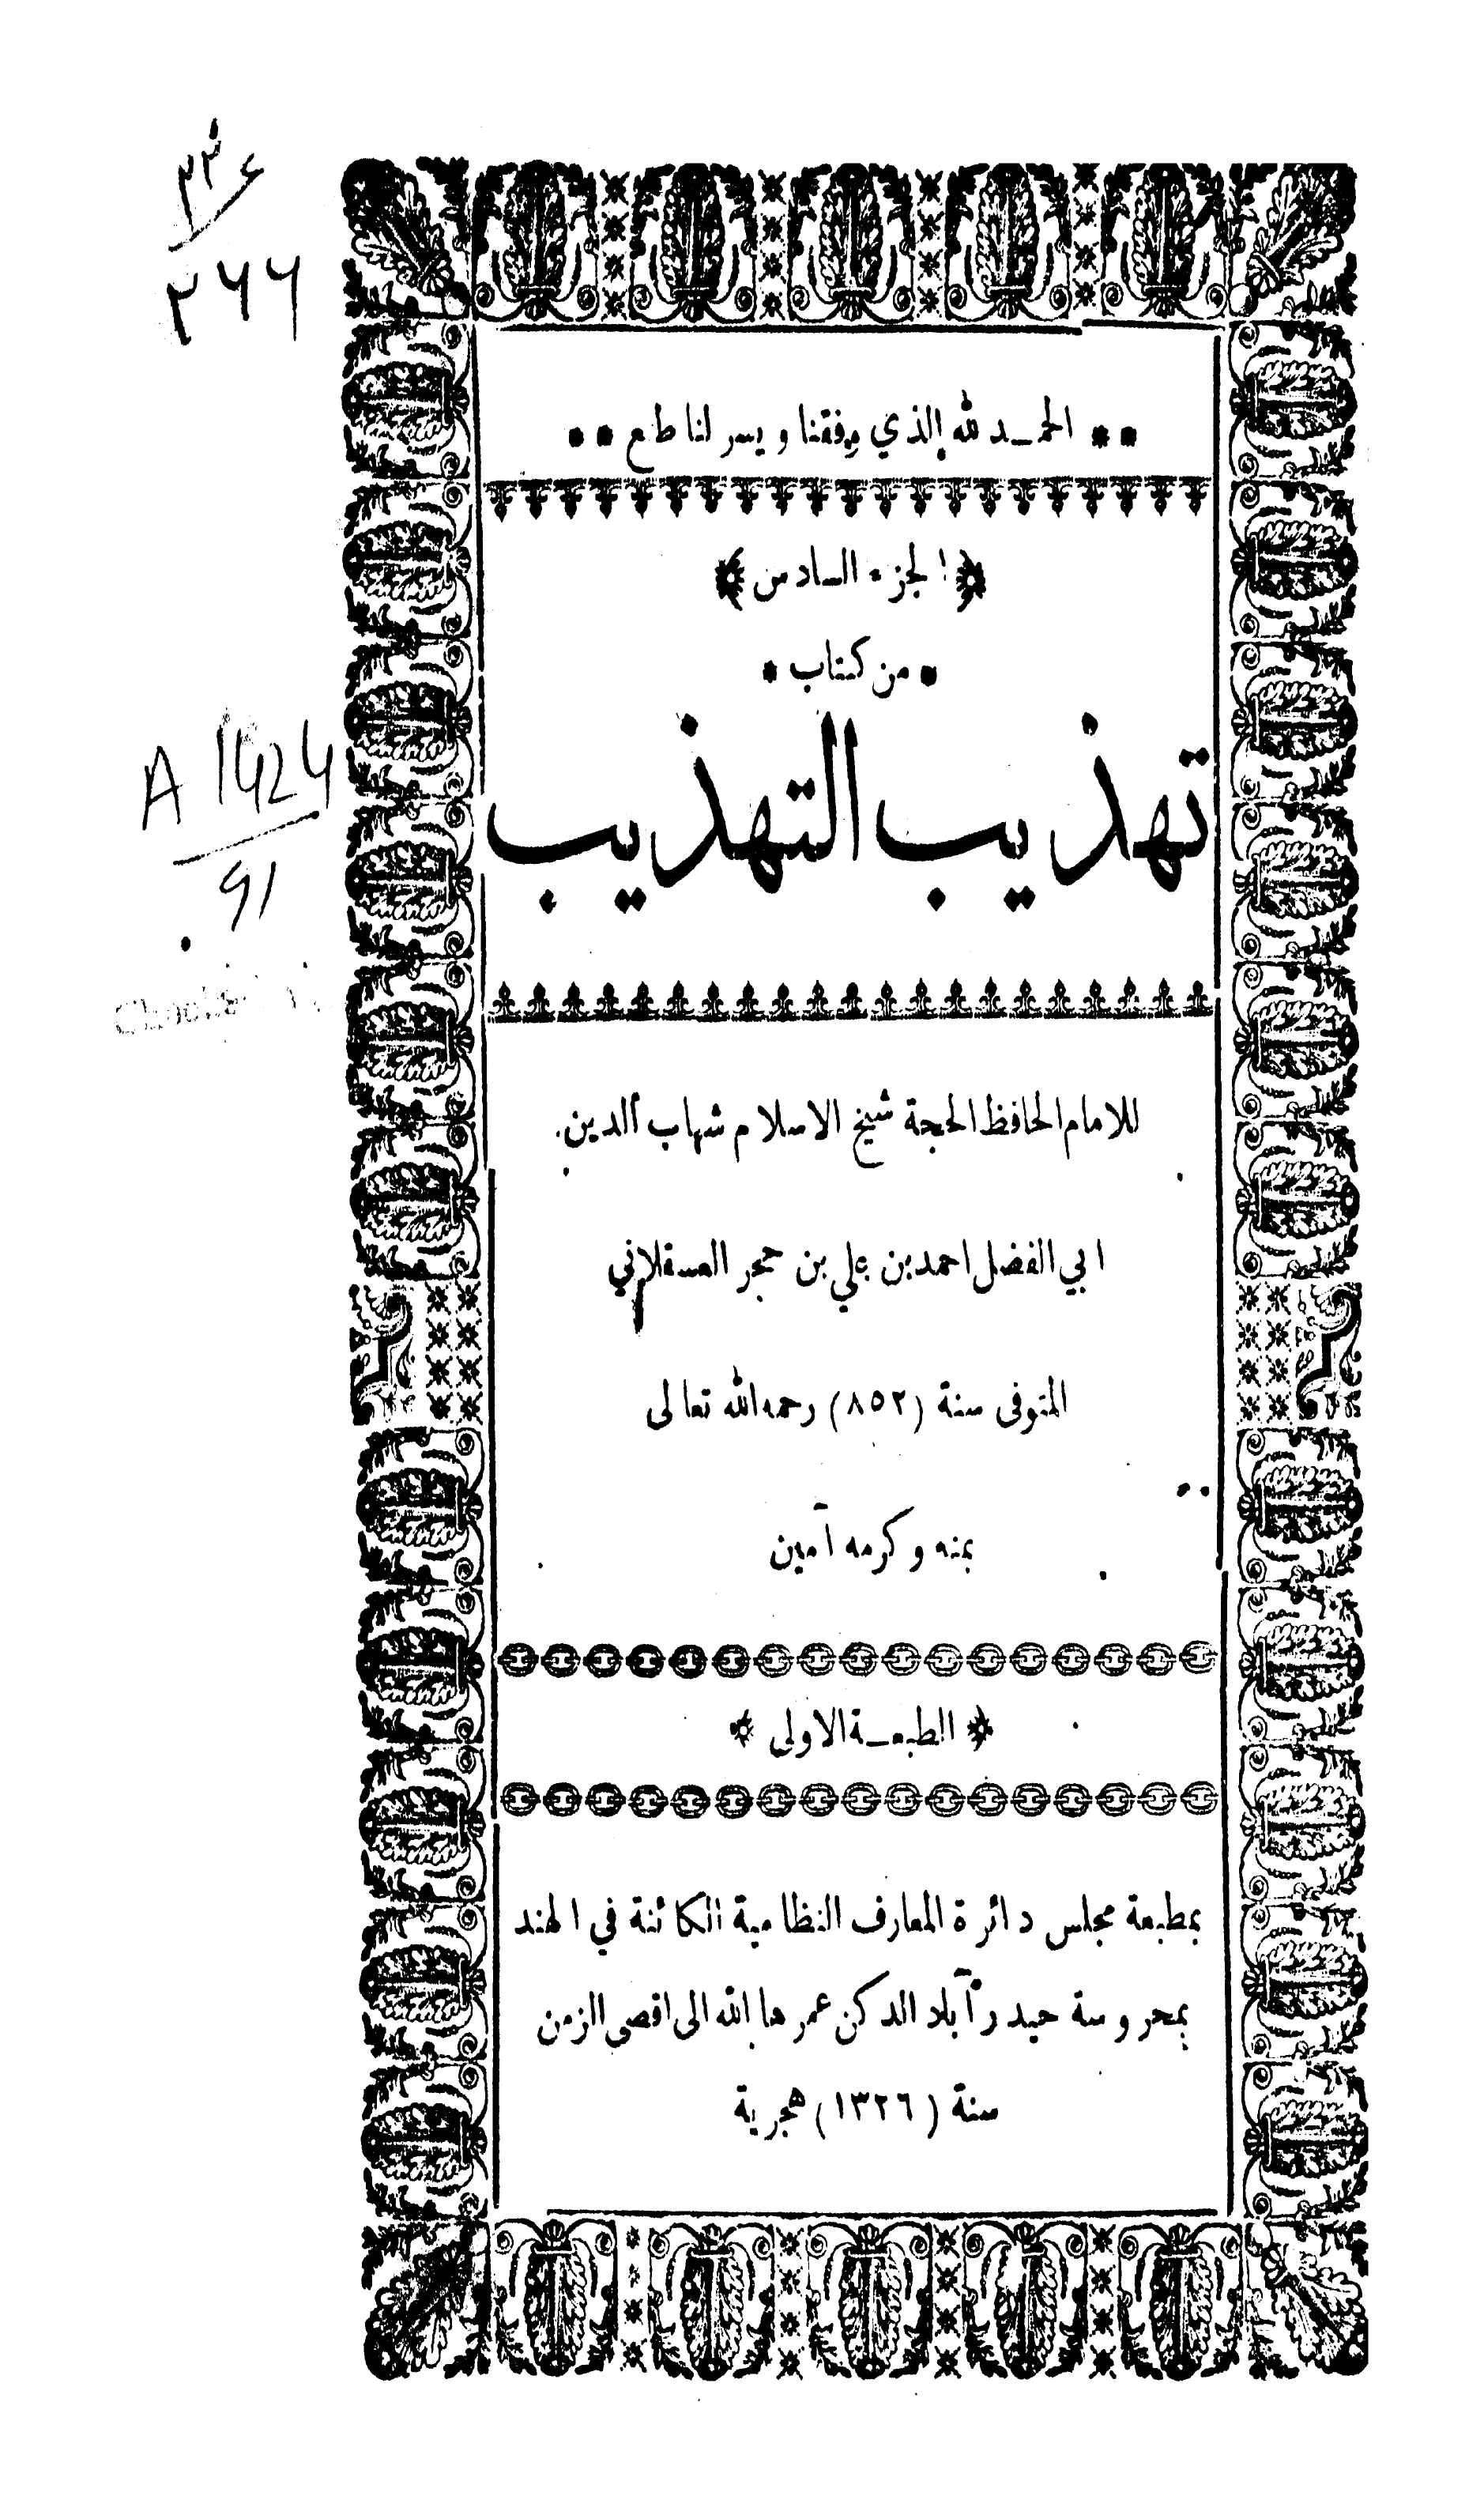 الحمد لله الذي وفقنا ويسر لنا طبع
الجزء السادس
من كتاب
تهذيب التهذيب
للامام الحافظ الحجة شيخ الاسلام شهاب الدين
ابي الفضل احمد بن علي بن حجر العسقلاني
المتوفى سنة (٨٥٢) رحمه الله تعالى
بمنه وكرمه آمين
الطبعة الاولى
بمطبعة مجلس دائرة المعارف النظامية الكائنة في الهند
بمحروسة حيدر آباد الدكن عمرها الله الى اقصى الزمن
سنة (١٣٢٦) هجرية
٢٦٦
91